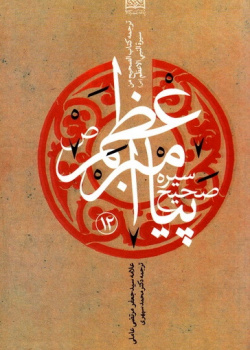 ترجمه کتاب الصحیح من
سیرة النبی الاعظم (ص)
سیره صحیح
پیامبر اعظم ص
۱۲
علامه سید جعفر مرتضی عاملی
ترجمه دکتر محمد سپهری